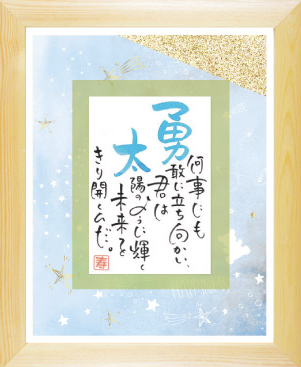 何事にも
勇敢に立ち向かい、
君は
太陽のように輝く
未来を
きり開くんだ。